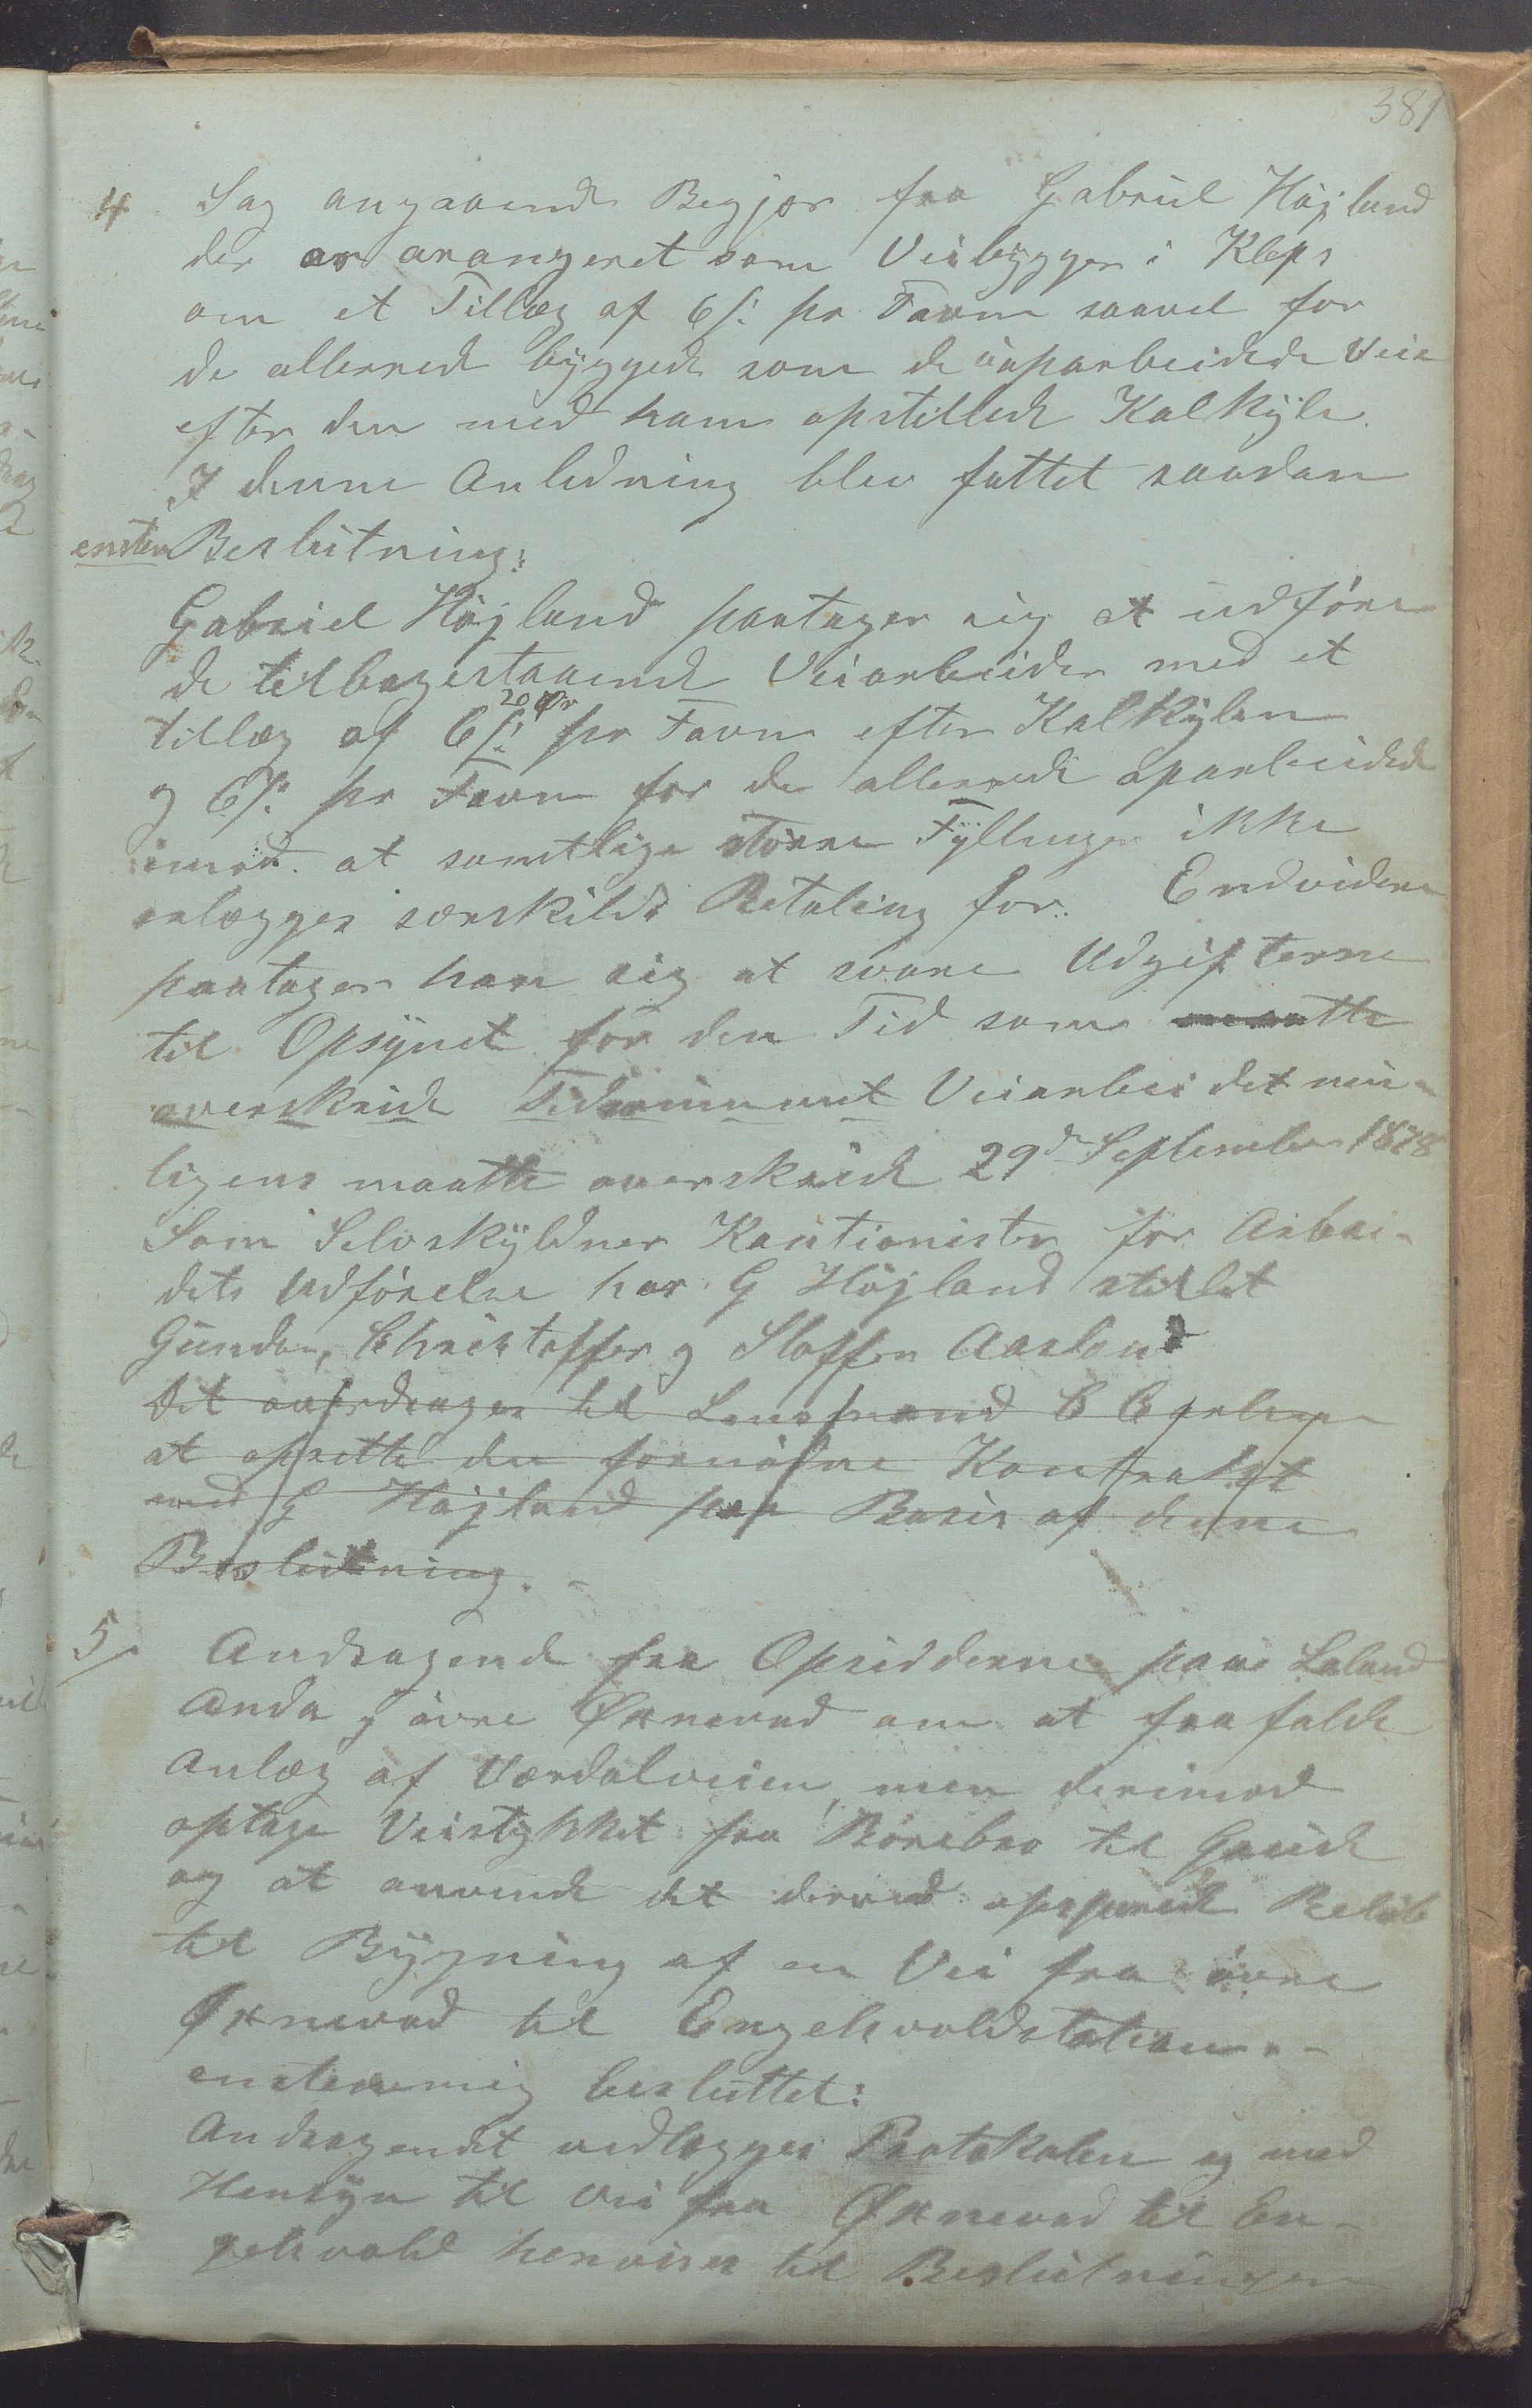 381
4 Sag angaaende Begjær fra Gabriel Höjland
der er arangeret som Veibygger i Klep
om et Tillæg af 6 s. pr Favn saavel for
de allerede byggede som de uoparbeidede Veie
efter den med ham opstillede Kalkyle.
I denne Anledning blev fattet saadan
enstem Beslutning:
Gabriel Höjland paatager sig at udföre
de tilbagestaaende Veiarbeider med et
20 ør
tillæg af 6 s. pr Favn efter Kalkylen
og 6 s. pr Favn for de allerede oparbeidede
imod at samtlige större Fyllinger ikke
erlægges særskildt Betaling for. Endvidere
paatager han sig at svare Udgifterne
til Opsynet for den Tid som maatte
overskride Tidsrummet Veiarbeidet mu-
ligens maatte overskride 29d September 1878
Som Selvskyldner Kautionister for Arbei-
dets Udförelse har G Höjland stillet
Gunder, Christoffer og Staffen Aasland
Det overdrages til Lensmand
at oprette den fornödne Kontrakt
med G Höjland paa Basis af denne
Beslutning.
5/ Andragende fra Opsidderne paa Laland
Anda og övre Øxnevad om at frafalde
Anlæg af Værdalveien, men derimod
optage Veistykket fra Börebro til Grude
og at anvende det derved opsparede Belöb
til Bygning af en Vei fra övre
Øxnevad til Engelsvoldstation. -
enstemmig besluttet:
Andragendet vedlægges Protokolen og med
Hensyn til Vei fra Øxnevad til En-
gelsvold henvises til Beslutningen